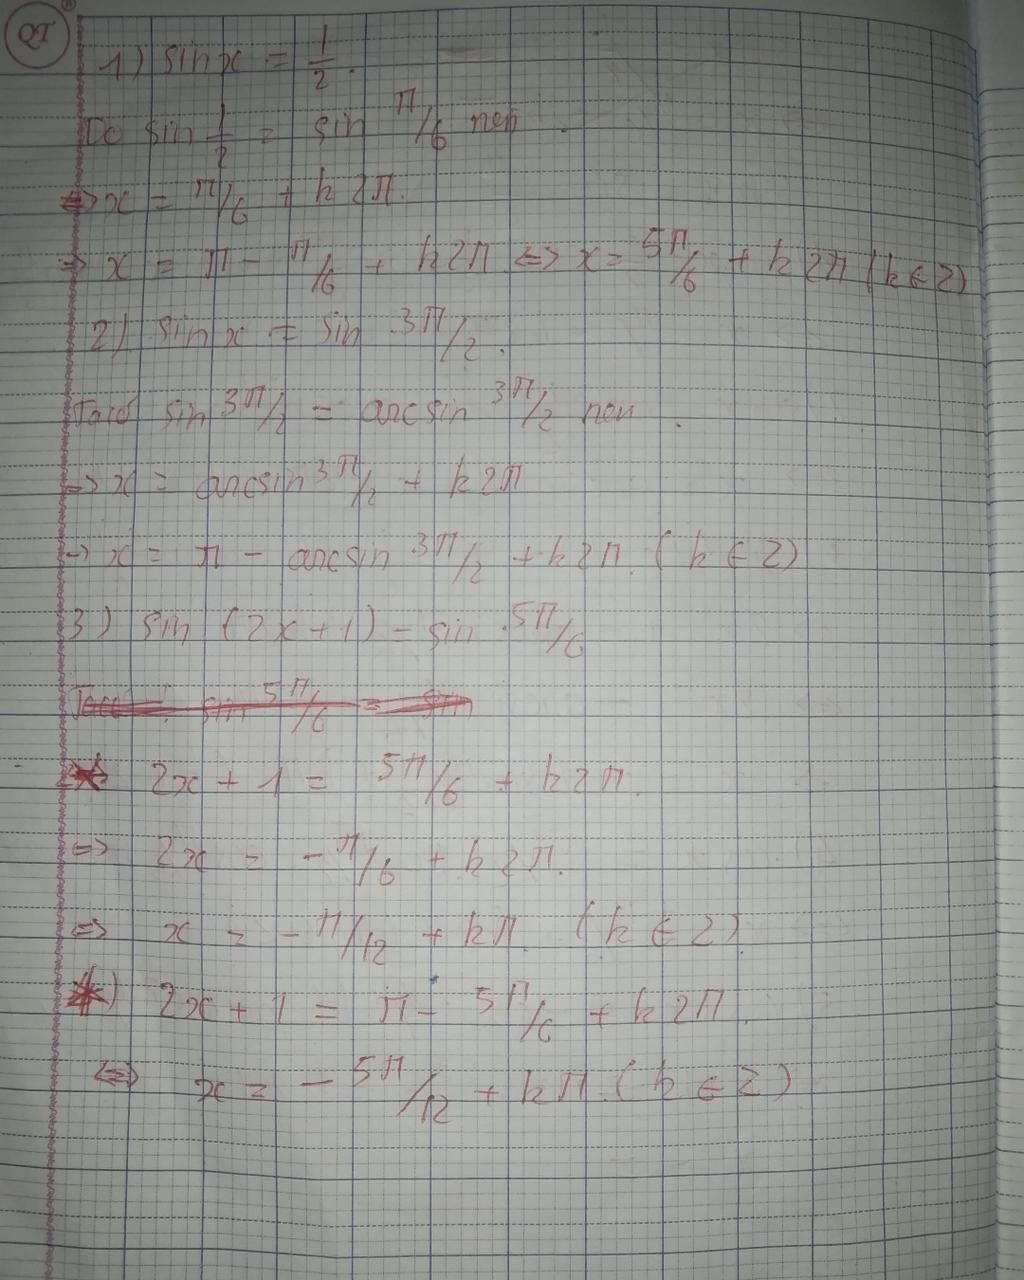 QT
1) sin x = 1/2.
Do sin 1/2 = sin π/6 nen
=> x = π/6 + k2π.
=> x = π - π/6 + k2π <=> x = 5π/6 + k2π (k ∈ Z)
2) sin x = sin 3π/2.
sin 3π/2 = arcsin 3π/2 nen
=> x = arcsin 3π/2 + k2π
-> x = π - arcsin 3π/2 + k2π. (k ∈ Z)
3) sin (2x+1) - sin 5π/6
sin 5π/6 = sin
2x + 1 = 5π/6 + k2π.
<=> 2x = -π/6 + k2π.
<=> x = -π/12 + kπ. (k ∈ Z)
*) 2x + 1 = π - 5π/6 + k2π.
<=> x = -5π/12 + kπ. (k ∈ Z)